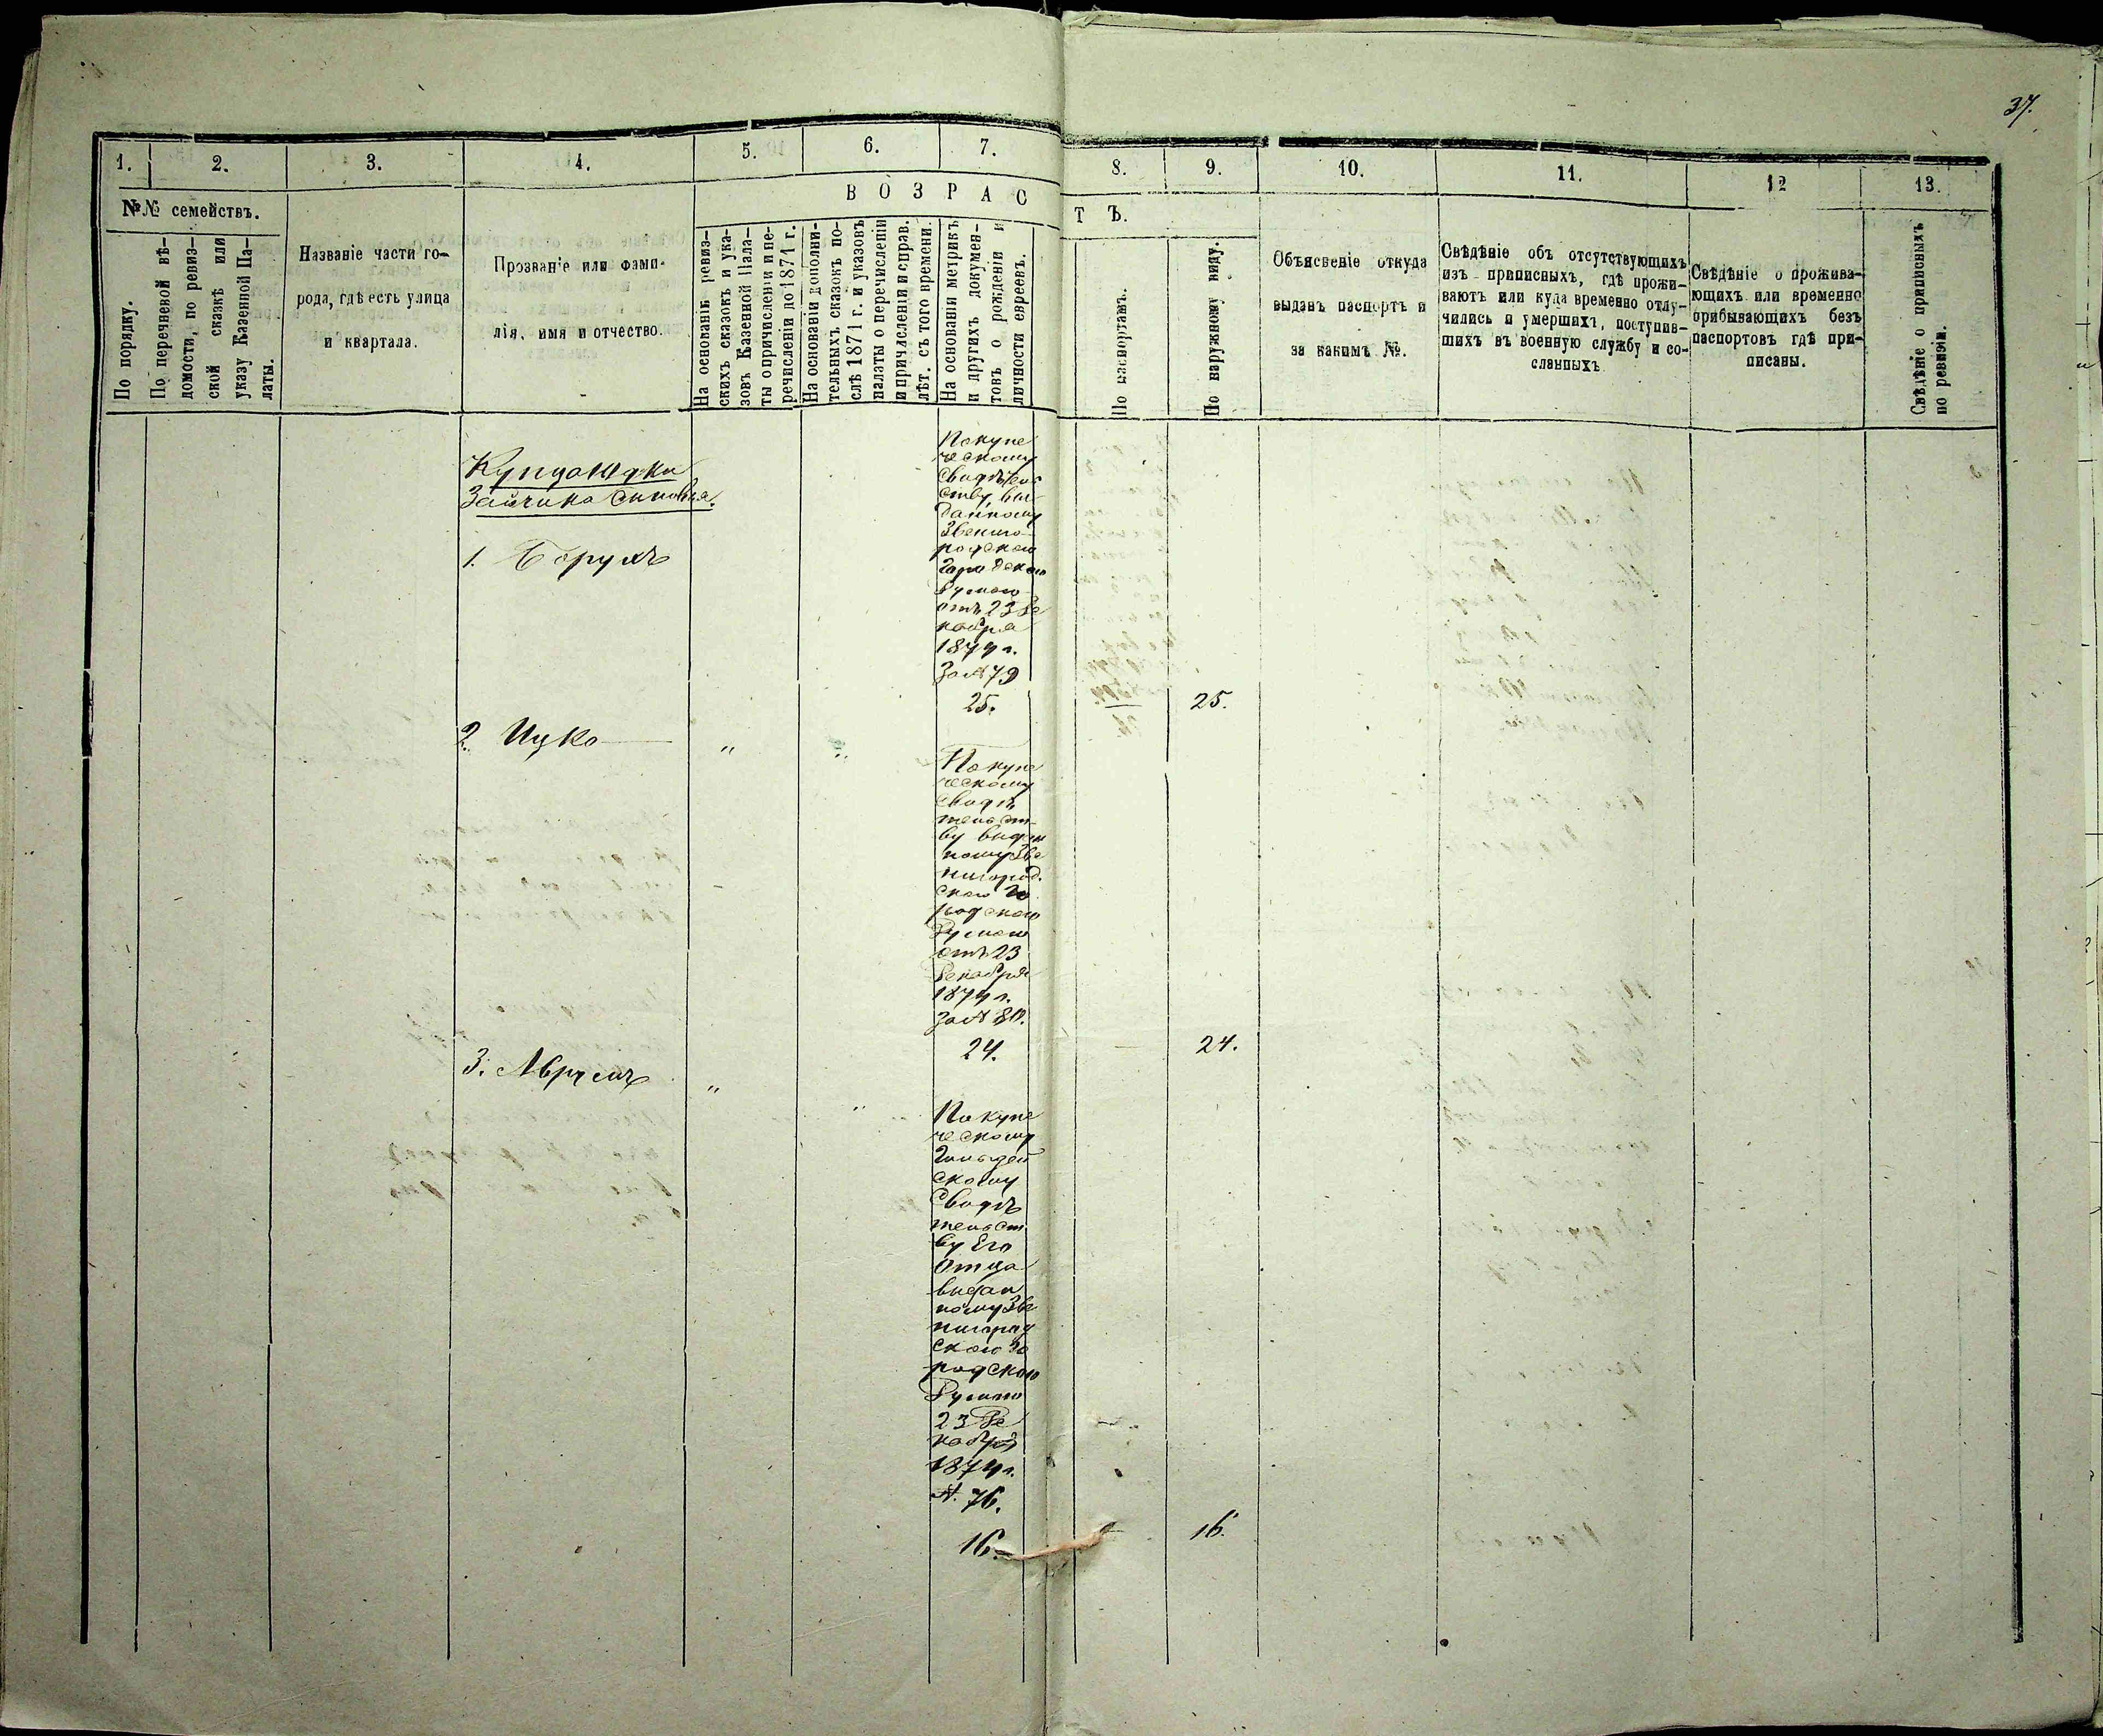 37.
1.
2.
3.
4.
5.
6.
7.
8.
9.
10.
11.
12
13.
№№ семействъ.
По порядку.
По перечневой вѣ-
домости, по ревиз-
ской сказкѣ или
указу Казенной Па-
латы.
Названіе части го-
рода, гдѣ есть улица
и квартала.
Прозваніе или фами-
лія, имя и отчество.
ВОЗРАС
ТЪ.
На основаніи ревиз-
скихъ сказокъ и ука-
зовъ Казенной Пала-
ты о причисленіи и пе-
речисленіи до 1871 г.
На основаніи дополни-
тельныхъ сказокъ по-
слѣ 1871 г. и указовъ
палаты о перечисленіи
и причисленіи и справ.
лѣт. съ того времени.
На основани метрикъ
и другихъ докумен-
товъ о рожденіи и
личности евреевъ.
По паспортамъ.
По наружному виду.
Объясненіе откуда
выданъ паспортъ и
за какимъ №.
Свѣдѣніе объ отсутствующихъ
изъ приписныхъ, гдѣ прожи-
ваютъ или куда временно отлу-
чились и умершихъ, поступив-
шихъ въ военную службу и со-
сланныхъ
Свѣдѣніе о прожива-
ющихъ или временно
прибывающихъ безъ
паспортовъ гдѣ при-
писаны.
Свѣдѣніе о приписныхъ
по ревизіи.
Купца Юдки
Зайчика сыновья.
1. Борухъ
По купе
ческому
свидѣтель
ству, вы-
данному
Звениго-
родскою
Городскою
Думою
отъ 23 Де
кабря
1874 г.
За № 79
25.
25.
2. Ицко
По купе
ческому
свидѣ
тельст-
ву выдан
ному Зве
нигород.
скою Го
родскою
Думою
отъ 23
Декабря
1874 г.
За № 80.
24.
24.
3. Аврумъ
По купе
ческому
Гильдей
скому
Свидѣ
тельст
ву Его
отца
выдан
ному Зве
нигород
скою Го
родскою
Думою
23 Де
кабря
1874 г.
№. 76.
16.
16.